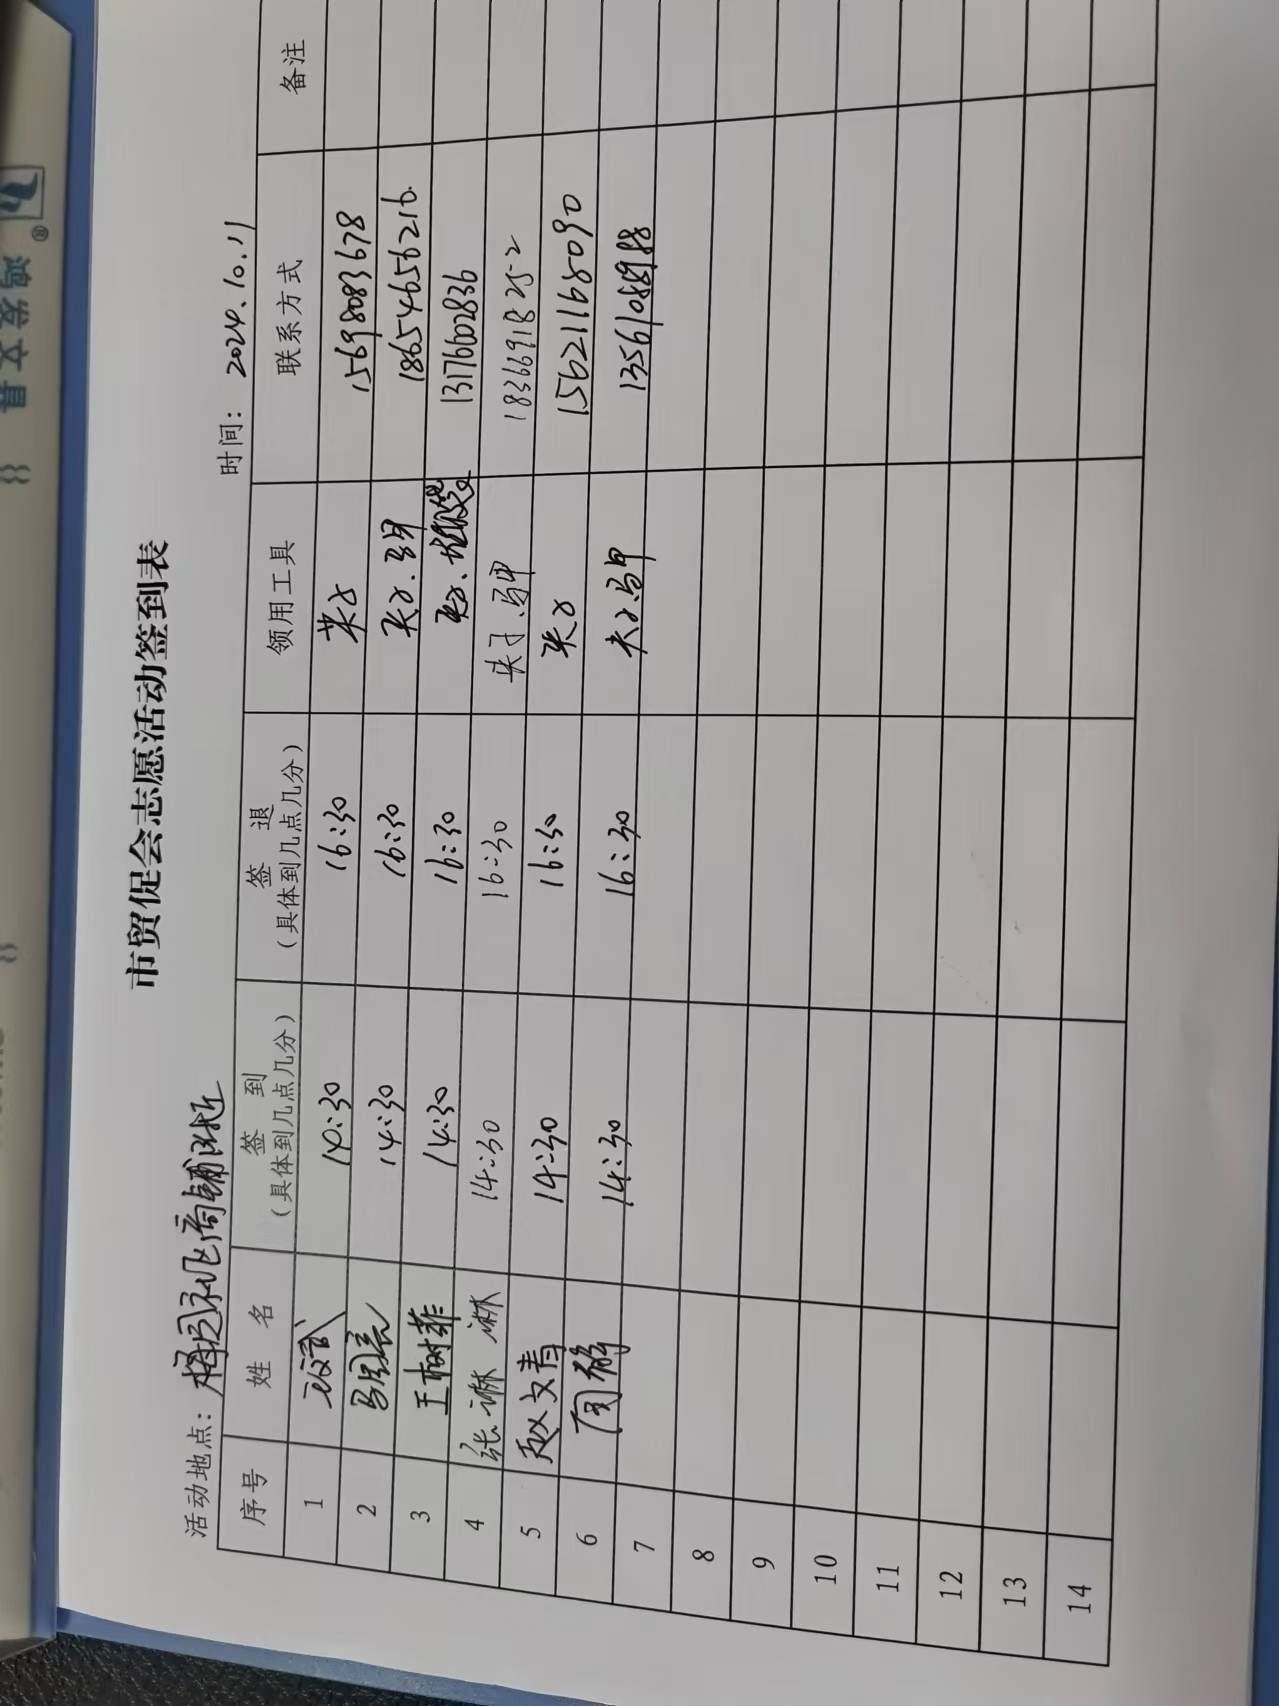 鸿发文具
市贸促会志愿活动签到表
活动地点: 梅园永飞商铺附近 时间: 2024.10.11
序号 姓 名 签 到 (具体到几点几分) 签 退 (具体到几点几分) 领用工具 联系方式 备注
1 14:30 16:30 夹子 15698083678
2 14:30 16:30 夹子、马甲 18654656216
3 王树菲 14:30 16:30 夹子、垃圾袋 13176602836
4 张琳琳 14:30 16:30 夹子、马甲
5 赵文青 14:30 16:30 夹子 15621168090
6 周 14:30 16:30 夹子、马甲
7
8
9
10
11
12
13
14